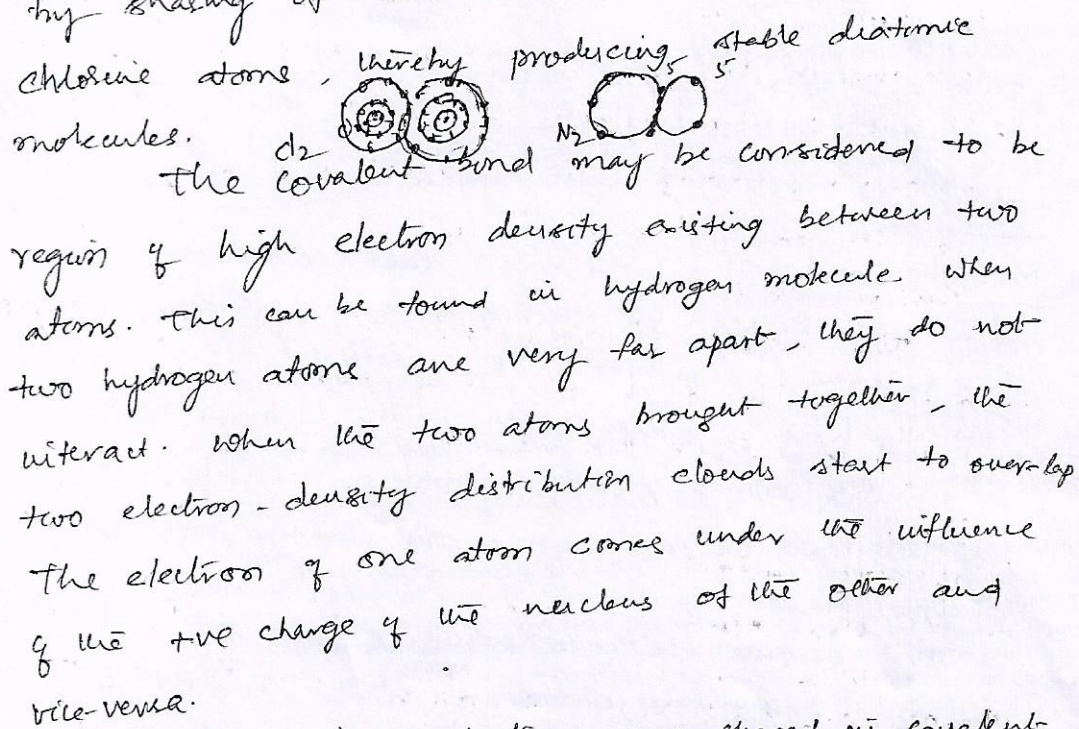 by sharing of
chlorine atoms, thereby producing stable diatomic
5 5
molecules.
Cl2 N2
The covalent bond may be considered to be
region of high electron density existing between two
atoms. This can be found in hydrogen molecule. When
two hydrogen atoms are very far apart, they do not
interact. When the two atoms brought together, the
two electron-density distribution clouds start to over-lap
The electron of one atom comes under the influence
of the +ve charge of the nucleus of the other and
vice-versa.
shared in covalent